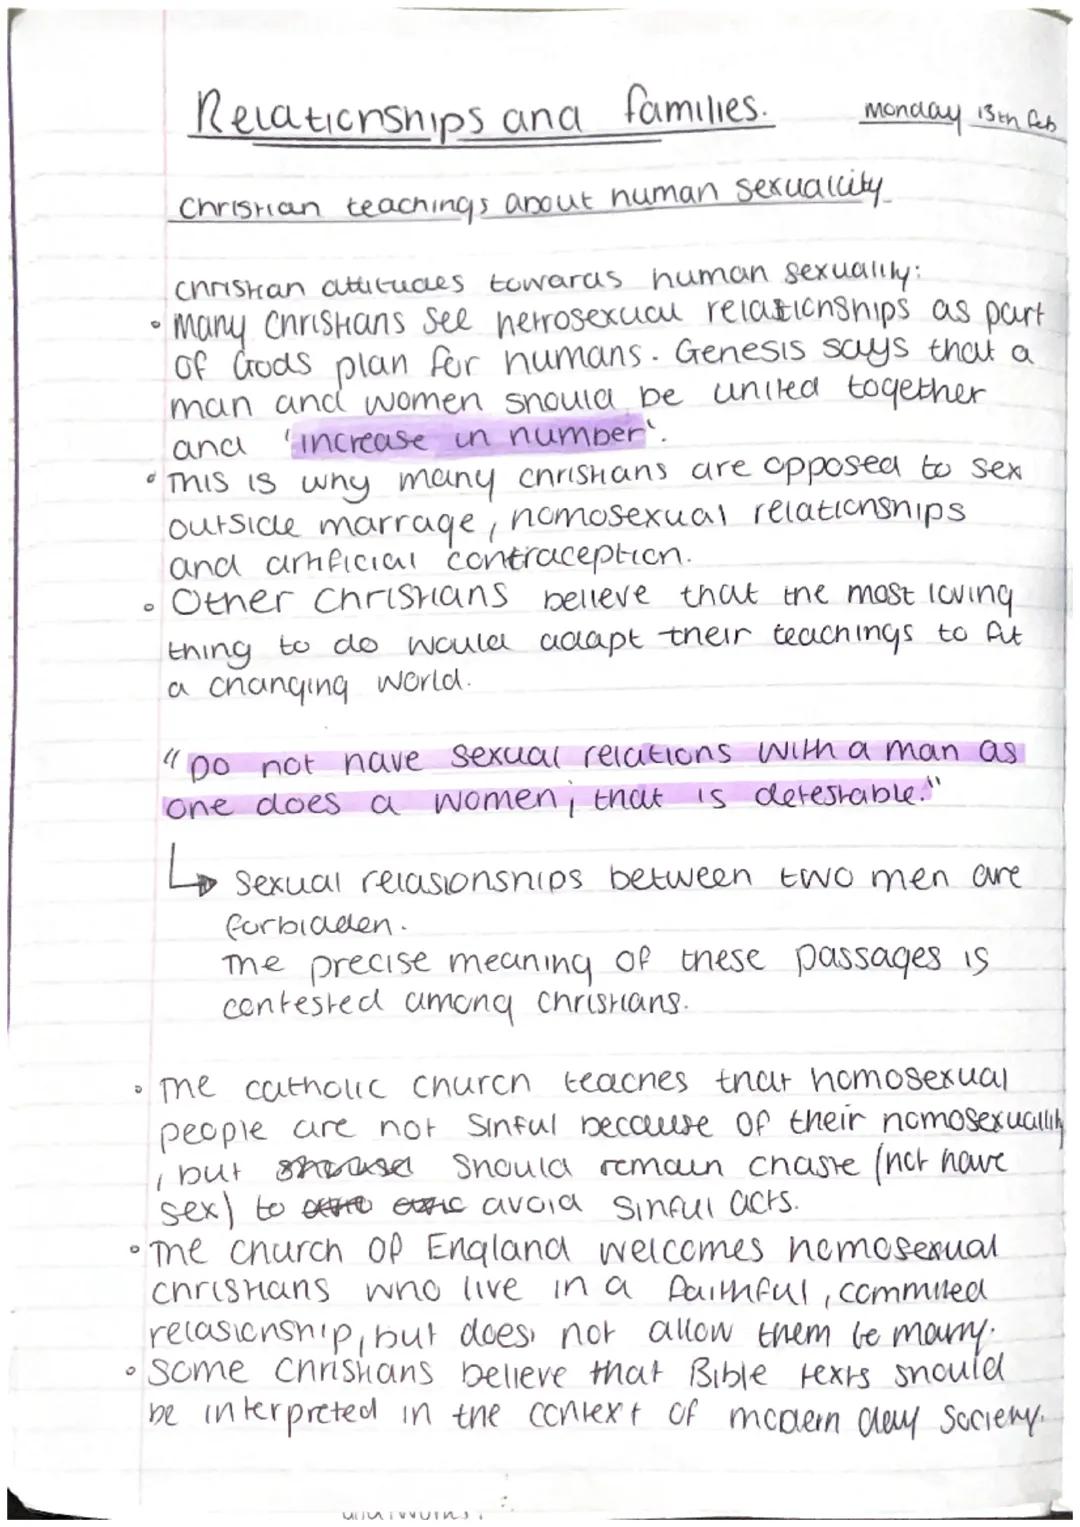 Relationships and families.
Monday 13th Feb
Christian teachings about human sexuallity
Christian attitudes towards human sexuality:
• Many Christians see hetrosexual relationships as part
of Gods plan for humans. Genesis says that a
man and women should be united together
and 'increase in number'.
• This is why many christians are opposed to sex
outside marrage, homosexual relationships
and artificial contraception.
• Other Christians believe that the most loving
thing to do would adapt their teachings to fit
a changing world.
"Do not have sexual relations with a man as
one does a women; that is detestable."
↳ Sexual relasionships between two men are
forbidden.
The precise meaning of these passages is
contested among christians.
• The catholic church teaches that homosexual
people are not sinful because of their homosexuallity
, but should remain chaste (not have
sex) to avoid sinful acts.
• The church of England welcomes homosexual
christians who live in a faithful, commited
relasionship, but does not allow them to marry.
• Some Christians believe that Bible texts should
be interpreted in the context of modern day society.